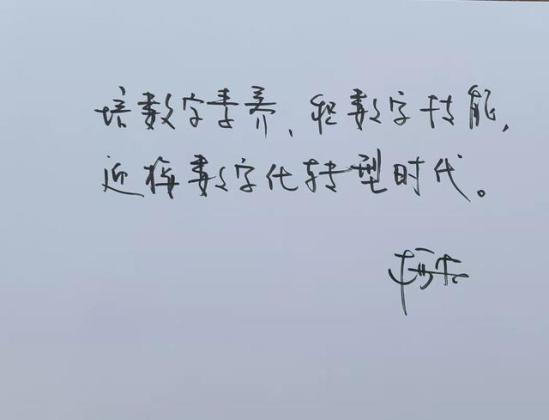 培数字素养、积数字技能,
迎接数字化转型时代。